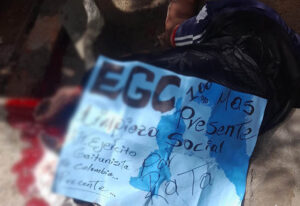 EGC 100 Mas
Presente
Limpieza Social
Ejercito
Gaitanista por
Colombia RaTa
Presente...